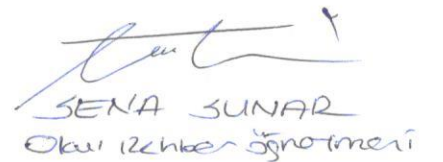 SENA SUNAR
Okul Rehber Öğretmeni